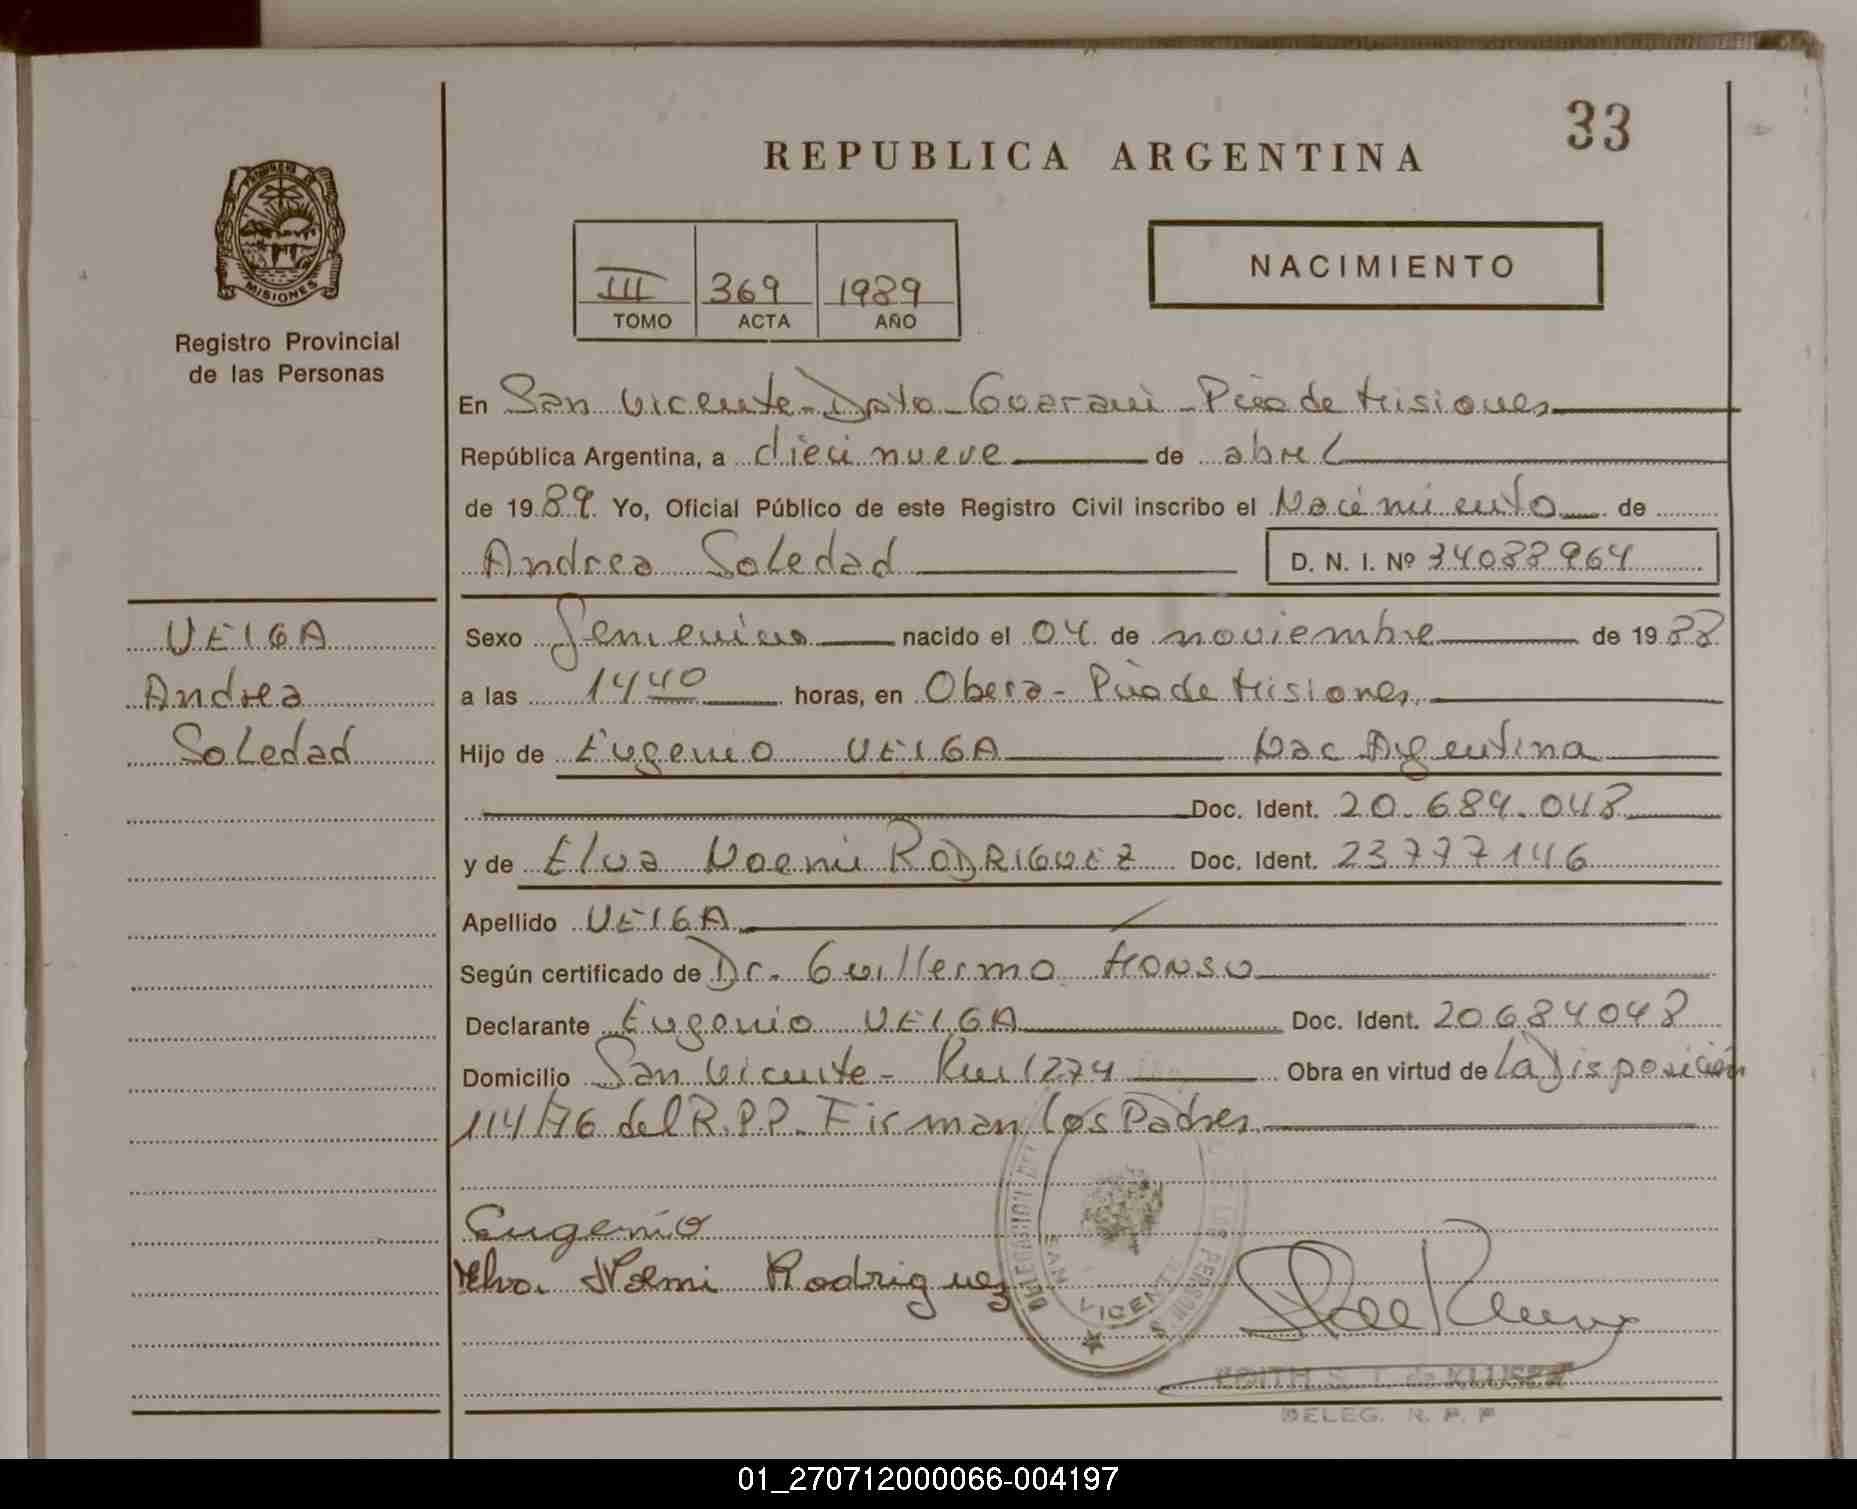 33
REPUBLICA ARGENTINA
PROVINCIA DE
MISIONES
Registro Provincial
de las Personas
III 369 1989
TOMO ACTA AÑO
NACIMIENTO
En San Vicente - Dpto Guarani - Pcia de Misiones
República Argentina, a dieci nueve de abril
de 1989. Yo, Oficial Público de este Registro Civil inscribo el Nacimiento de
Andrea Soledad D. N. I. Nº 34088964
VEIGA
Andrea
Soledad
Sexo femenino nacido el 04 de noviembre de 1988
a las 14 40 horas, en Obera - Pcia de Misiones
Hijo de Eugenio VEIGA Nac Argentina
Doc. Ident. 20.684.048
y de Elva Noemi RODRIGUEZ Doc. Ident. 23777146
Apellido VEIGA
Según certificado de Dr. Guillermo
Declarante Eugenio VEIGA Doc. Ident. 20684048
Domicilio San Vicente - Km 1274 Obra en virtud de La Disposición
114/76 del R.P.P. Firman los Padres
Eugenio
Elva Noemi Rodriguez
DELEGACION DEL
LAS PERSONAS
SAN VICENTE
EDITH S. T. de KLUSER
DELEG. R. P. P
01_270712000066-004197